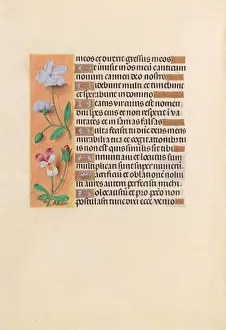 meos et direxit gressus meos
Et inmisit in os meum canticum
novum carmen deo nostro
Videbunt multi et timebunt
et sperabunt in domino
Beatus vir cuius est nomen
dni spes eius et non respexit va
nitates et insanias falsas
Multa fecisti tu dne deus
meus mirabilia tua et cogita
tionibus tuis non est quis si
milis sit tibi
Annuntiavi et locutus sum
multiplicati sunt super numerum
Sacrificium et oblationem noluisti
aures autem perfecisti michi
Holocaustum et pro peccato non
postulasti tunc dixi ecce venio